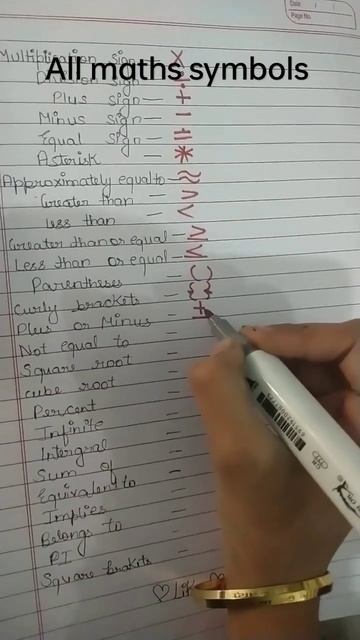 Date /
Page No.
All maths symbols
Multiplication sign — ×
Division sign
Plus sign — +
Minus sign — −
Equal sign — =
Asterisk — *
Approximately equal to — ≈
Greater than — >
less than — <
Greater than or equal — ≥
Less than or equal — ≤
Parentheses — ( )
Curly brackets — { }
Plus or Minus — +
Not equal to —
Square root —
cube root —
Percent —
Infinite —
Intergral —
Sum of —
Equivalent to —
Implies —
Belongs to —
PI —
Square brakits —
♡ Like ♡